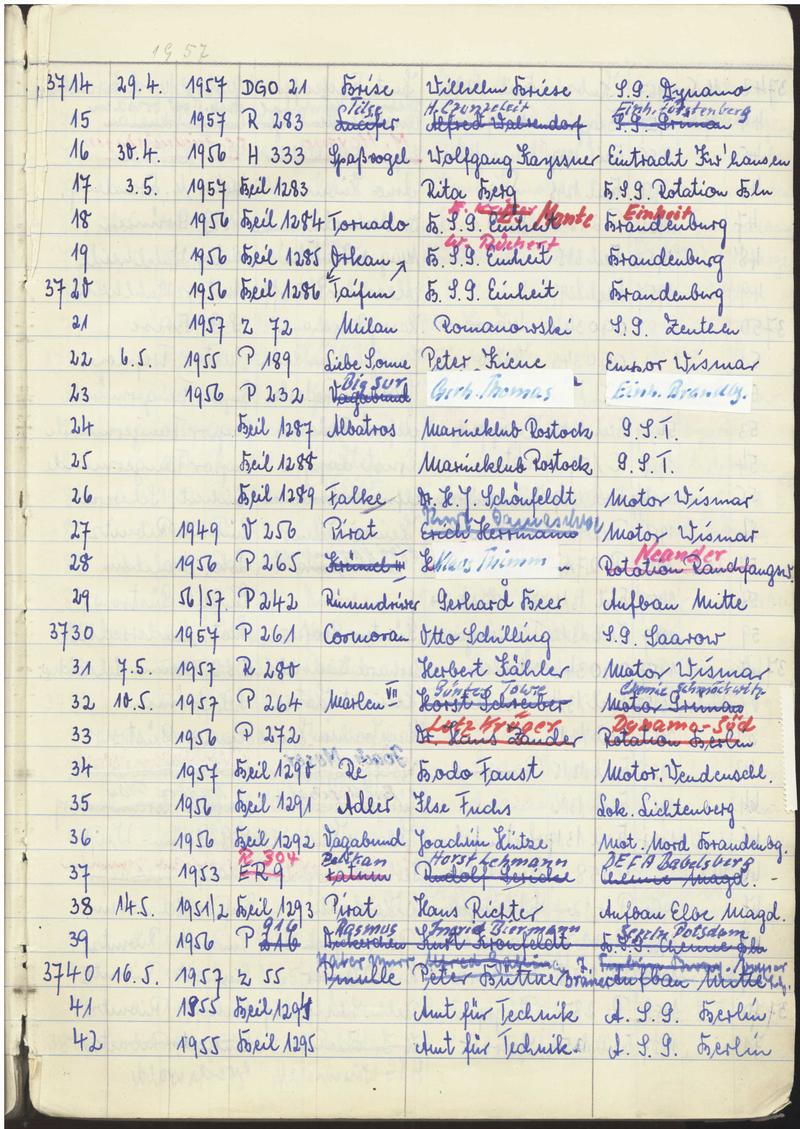 1957
3714 29.4. 1957 DGO 21 Brise Wilhelm Briese S.G. Dynamo
Tilse H. Czunzeleit Einh. Fürstenberg
15 1957 R 283 Luzifer Alfred Walsendorf S.G. Grünau
16 30.4. 1956 H 333 Spaßvogel Wolfgang Kayssner Eintracht Kw'hausen
17 3.5. 1957 Beil 1283 Rita Berg B.S.G. Rotation Bln
Mante Einheit
18 1956 Beil 1284 Tornado B.S.G. Einheit Brandenburg
W. Richert
19 1956 Beil 1285 Orkan B.S.G. Einheit Brandenburg
3720 1956 Beil 1286 Taifun B.S.G. Einheit Brandenburg
21 1957 Z 72 Milan Romanowski S.G. Zeuten
22 6.5. 1955 P 189 Liebe Sonne Peter Kiene Empor Wismar
Big sur
23 1956 P 232 Vagabund Gerh. Thomas Einh. Brandbg.
24 Beil 1287 Albatros Marineklub Rostock G.S.T.
25 Beil 1288 Marineklub Rostock G.S.T.
26 Beil 1289 Falke Dr. H.J. Schönfeldt Motor Wismar
Kurt
27 1949 V 256 Pirat Erich Herrmann Motor Wismar
Neander
28 1956 P 265 Krümel III Klaus Thimm Rotation Rauchfangsw.
29 56/57. P 242 Rimundriser Gerhard Beer Aufbau Mitte
3730 1957 P 261 Cormoran Otto Schilling S.G. Saarow
31 7.5. 1957 R 280 Herbert Kähler Motor Wismar
Günter Towe Chemie Schmöckwitz
32 10.5. 1957 P 264 Marlen VII Horst Schreiber Motor Grünau
Lutz Krüger Dynamo-Süd
33 1956 P 272 Dr. Hans Zander Rotation Berlin
34 1957 Beil 1290 Re Bodo Faust Motor. Wendenschl.
35 1956 Beil 1291 Adler Ilse Fuchs Lok. Lichtenberg
36 1956 Beil 1292 Vagabund Joachim Hintze Mot. Nord Brandenbg.
R 304 Balkan Horst Lehmann DEFA Babelsberg
37 1953 ER 9 Fatum Rudolf Gericke Chemie Magd.
38 14.5. 1951/2 Beil 1293 Pirat Hans Richter Aufbau Elbe Magd.
916 Rasmus Ingrid Biermann Serin Potsdam
39 1956 P 216 Kurt Kronfeldt B.S.G. Chemie
Kater Murr
3740 16.5. 1957 Z 55 Peter Büttner Aufbau Mitte
41 1955 Beil 1294 Amt für Technik A.S.G. Berlin
42 1955 Beil 1295 Amt für Technik. A.S.G. Berlin